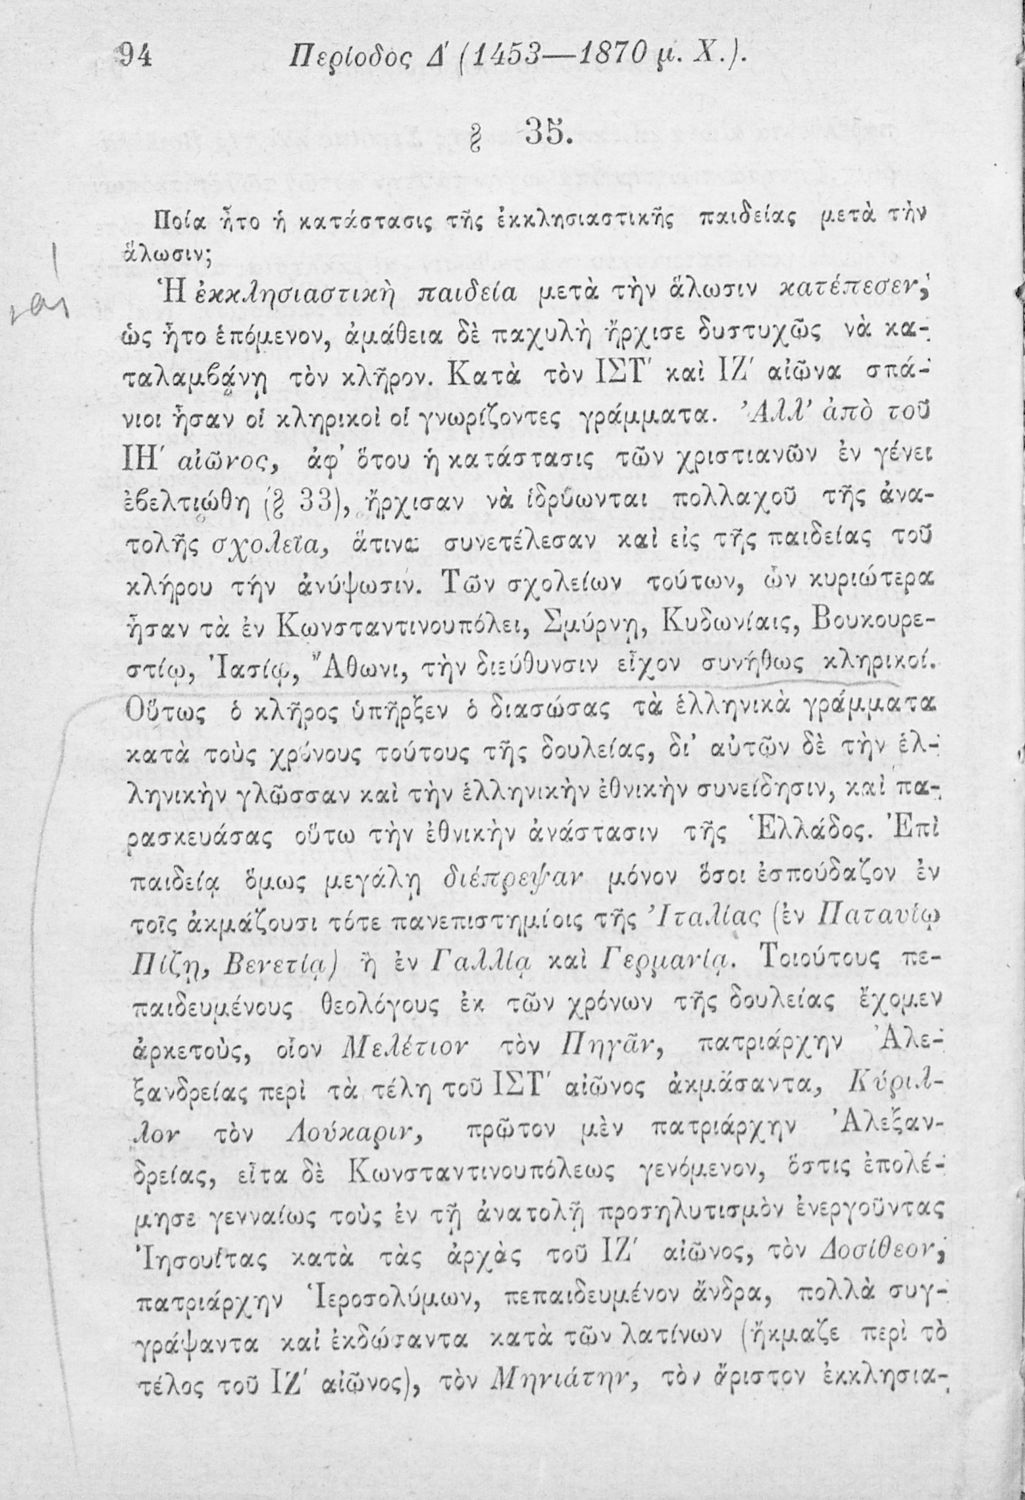 94 Περίοδος Δ' (1453—1870 μ. Χ.).
§ 35.
Ποία ἦτο ἡ κατάστασις τῆς ἐκκλησιαστικῆς παιδείας μετὰ τὴν
ἅλωσιν;
Ἡ ἐκκλησιαστικὴ παιδεία μετὰ τὴν ἅλωσιν κατέπεσεν,
ὡς ἦτο ἑπόμενον, ἀμάθεια δὲ παχυλὴ ἤρχισε δυστυχῶς νὰ κα-
ταλαμβάνῃ τὸν κλῆρον. Κατὰ τὸν ΙΣΤ' καὶ ΙΖ' αἰῶνα σπά-
νιοι ἦσαν οἱ κληρικοὶ οἱ γνωρίζοντες γράμματα. Ἀλλ' ἀπὸ τοῦ
ΙΗ' αἰῶνος, ἀφ' ὅτου ἡ κατάστασις τῶν χριστιανῶν ἐν γένει
ἐβελτιώθη (§ 33), ἤρχισαν νὰ ἱδρύωνται πολλαχοῦ τῆς ἀνα-
τολῆς σχολεῖα, ἅτινα συνετέλεσαν καὶ εἰς τῆς παιδείας τοῦ
κλήρου τήν ἀνύψωσιν. Τῶν σχολείων τούτων, ὧν κυριώτερα
ἦσαν τὰ ἐν Κωνσταντινουπόλει, Σμύρνῃ, Κυδωνίαις, Βουκουρε-
στίῳ, Ἰασίῳ, Ἄθωνι, τὴν διεύθυνσιν εἶχον συνήθως κληρικοί.
Οὕτως ὁ κλῆρος ὑπῆρξεν ὁ διασώσας τὰ ἑλληνικὰ γράμματα
κατὰ τοὺς χρόνους τούτους τῆς δουλείας, δι' αὐτῶν δὲ τὴν ἑλ-
ληνικὴν γλῶσσαν καὶ τὴν ἑλληνικὴν ἐθνικὴν συνείδησιν, καὶ πα-
ρασκευάσας οὕτω τὴν ἐθνικὴν ἀνάστασιν τῆς Ἑλλάδος. Ἐπὶ
παιδείᾳ ὅμως μεγάλῃ διέπρεψαν μόνον ὅσοι ἐσπούδαζον ἐν
τοῖς ἀκμάζουσι τότε πανεπιστημίοις τῆς Ἰταλίας (ἐν Παταυίῳ
Πίζῃ, Βενετίᾳ) ἢ ἐν Γαλλίᾳ καὶ Γερμανίᾳ. Τοιούτους πε-
παιδευμένους θεολόγους ἐκ τῶν χρόνων τῆς δουλείας ἔχομεν
ἀρκετοὺς, οἷον Μελέτιον τὸν Πηγᾶν, πατριάρχην Ἀλε-
ξανδρείας περὶ τὰ τέλη τοῦ ΙΣΤ' αἰῶνος ἀκμάσαντα, Κύριλ-
λον τὸν Λούκαριν, πρῶτον μὲν πατριάρχην Ἀλεξαν-
δρείας, εἶτα δὲ Κωνσταντινουπόλεως γενόμενον, ὅστις ἐπολέ-
μησε γενναίως τοὺς ἐν τῇ ἀνατολῇ προσηλυτισμὸν ἐνεργοῦντας
Ἰησουΐτας κατὰ τὰς ἀρχὰς τοῦ ΙΖ' αἰῶνος, τὸν Δοσίθεον,
πατριάρχην Ἱεροσολύμων, πεπαιδευμένον ἄνδρα, πολλὰ συγ-
γράψαντα καὶ ἐκδώσαντα κατὰ τῶν λατίνων (ἤκμαζε περὶ τὸ
τέλος τοῦ ΙΖ' αἰῶνος), τὸν Μηνιάτην, τὸν ἄριστον ἐκκλησια-